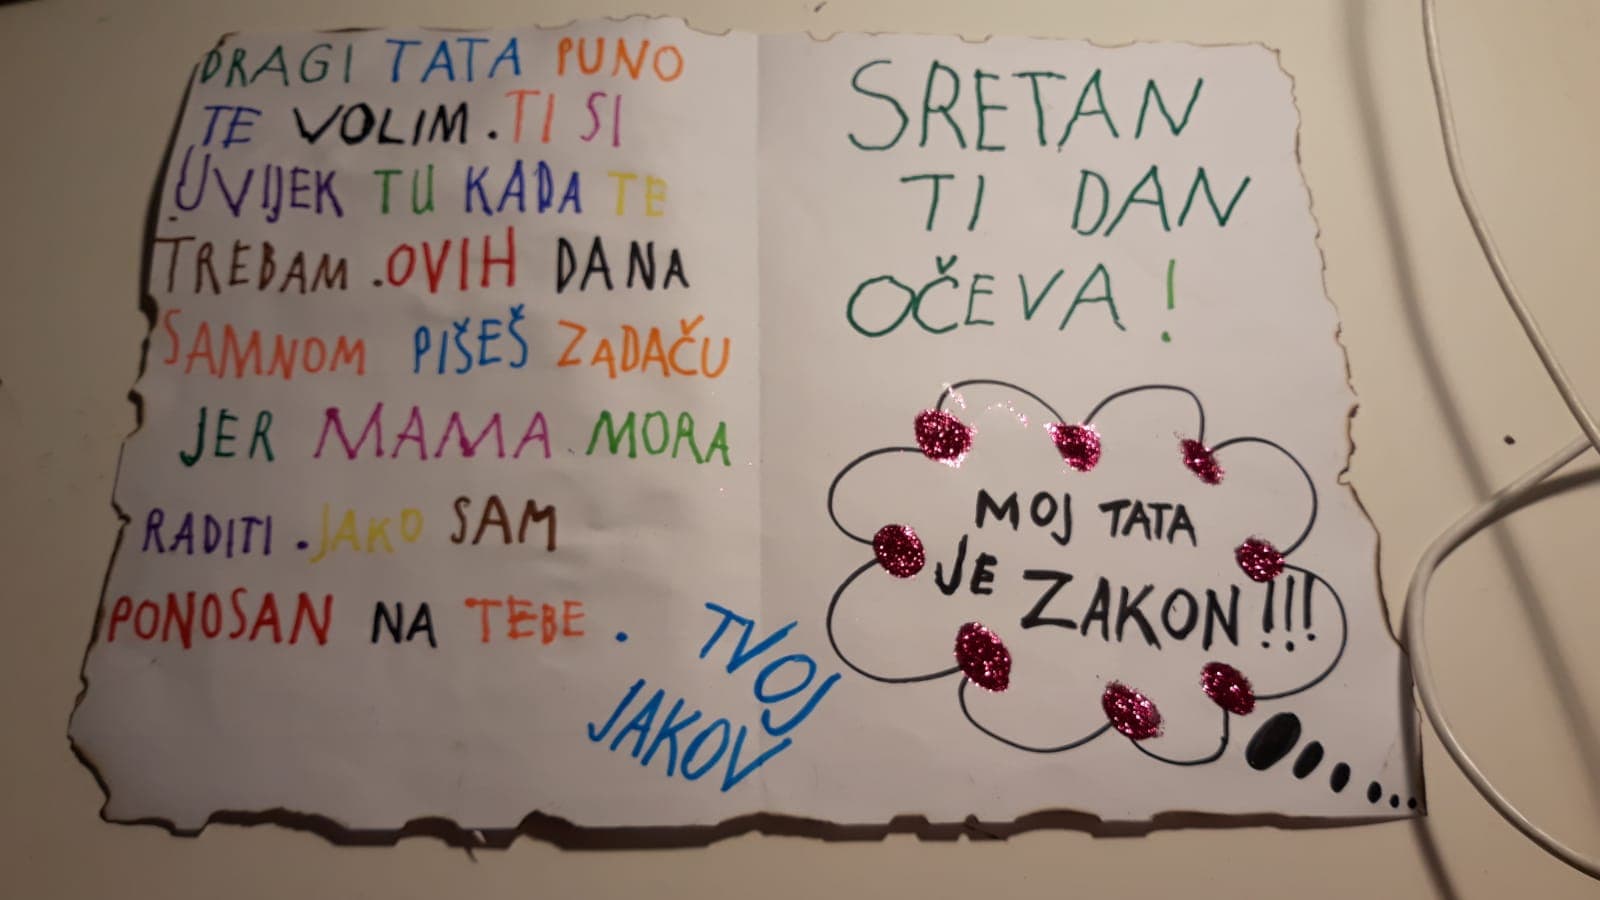 DRAGI TATA PUNO
TE VOLIM. TI SI
UVIJEK TU KADA TE
TREBAM. OVIH DANA
SAMNOM PIŠEŠ ZADAČU
JER MAMA MORA
RADITI. JAKO SAM
PONOSAN NA TEBE.
TVOJ
JAKOV
SRETAN
TI DAN
OČEVA!
MOJ TATA
JE ZAKON!!!